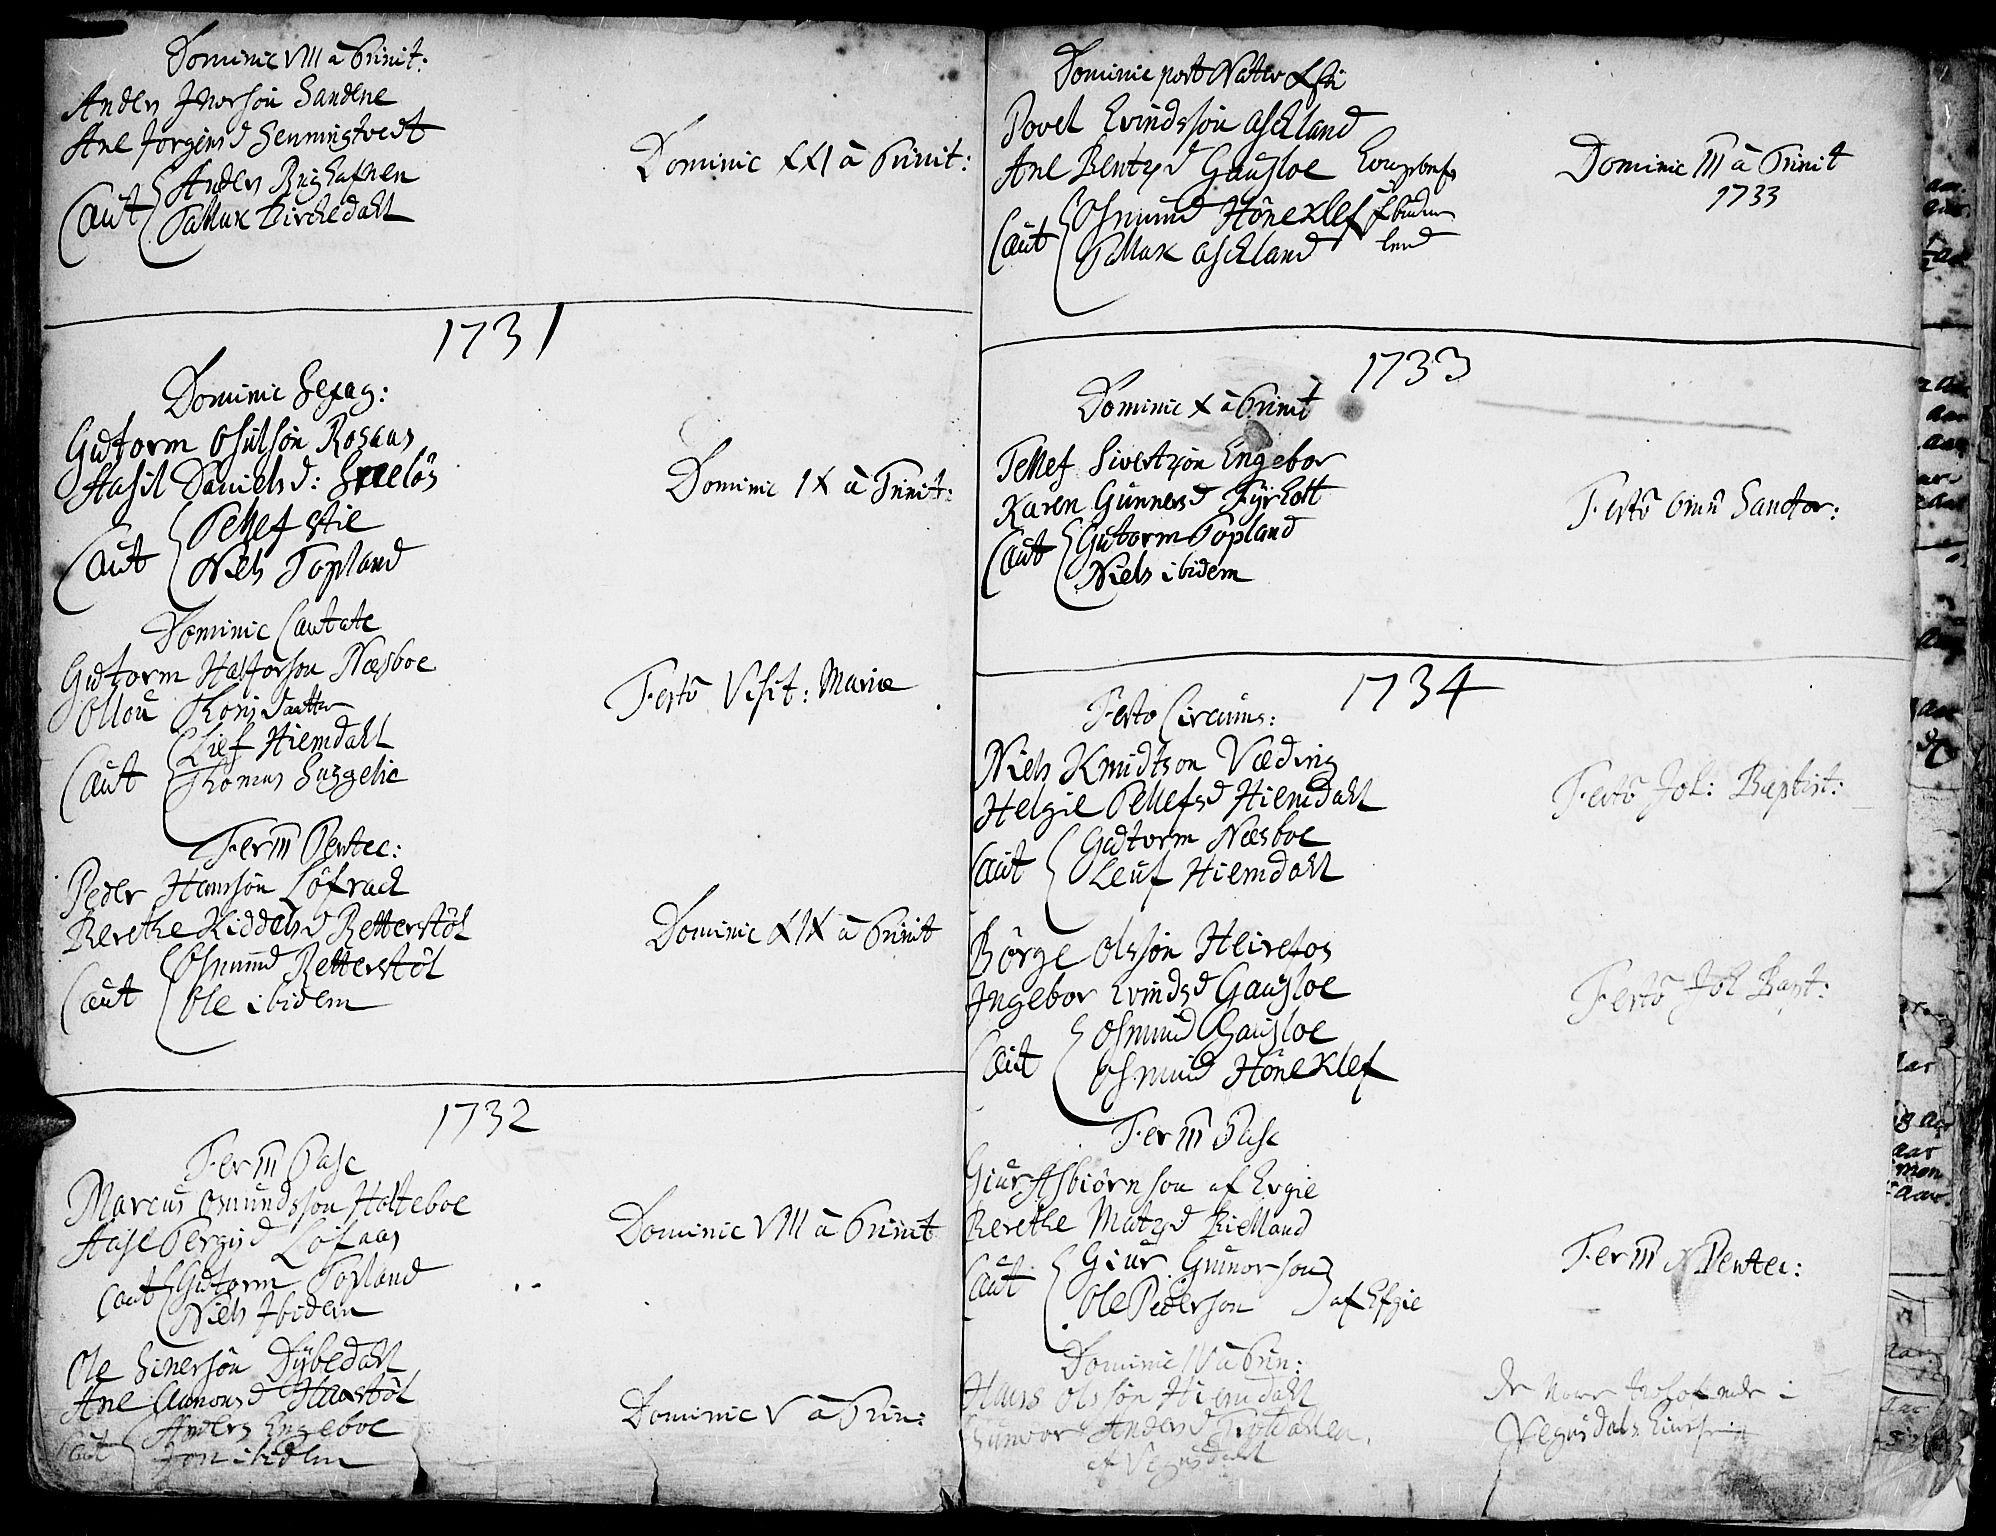 Dominic VIII â Trinit:
Anders Jversøn Sandene
Ane Jørgensd Senmingtvedt
Caut Anders
Tallax Birchedahl
Dominic XXI â Trinit:
1731
Dominic Sexag:
Gutorm Osulsøn Rosaas
Aasil Danielsd:
Caut Tellef Stie
Niels Topland
Dominic IX â Trinit:
Dominic Cantate
Gutorm Næsboe
Ollou Thorisdaatter
Caut Lief Hiemdahl
Thomas
Festo Visit: Mariæ
Fer III Pentec:
Peder Hansøn Løfrach
Berethe Kiddelsd Retterstøl
Caut Osmund Retterstøl
Ole ibidem
Dominic XIX â Trinit
1732
Fer III Pasc
Marcus Osmundsson Holteboe
Aase Tergisd Løfaas
Caut Gutorm Topland
Niels Jbidem
Dominic VIII â Trinit
Ole Einersøn Dybedahl
Ane Aanonsd Haxstøl
Caut Anders Engeboe
Jon ibidem
Dominic V â Trin:
Dominic post Nativ Xsti
Povel Evindssøn Askland
Ane Bentzd Gausloe
Caut Osmund Høneklef
Tallax Askland
Dominic III â Trinit
1733
1733
Dominic X â Trinit
Tellef Sivertzøn Engebor
Karen Gunnersd Fyrholt
Caut Gutorm Topland
Niels ibidem
Festo Omn Sanctor:
1734
Festo Circums:
Niels Knudtson Væding
Helgie Tellefsd Hiemdahl
Caut Gutorm Næsboe
Leuf Hiemdahl
Festo Joh: Baptist:
Børge Olssøn Heirefos
Ingebor Evindsd Gausloe
Caut Osmund Gausloe
Osmund Høneklef
Festo Joh Bapt:
Fer III Pasc
Giur Asbiørnson af Evgie
Berethe Matzd Kielland
Caut Giur Gunorson
Ole Pederson af Efgie
Fer III Pentec:
Dominic IV â Trin:
Hans Olssøn Hiemdahl
Gunvor Andersd
af Vegusdahl
De vare i
Vegusdals